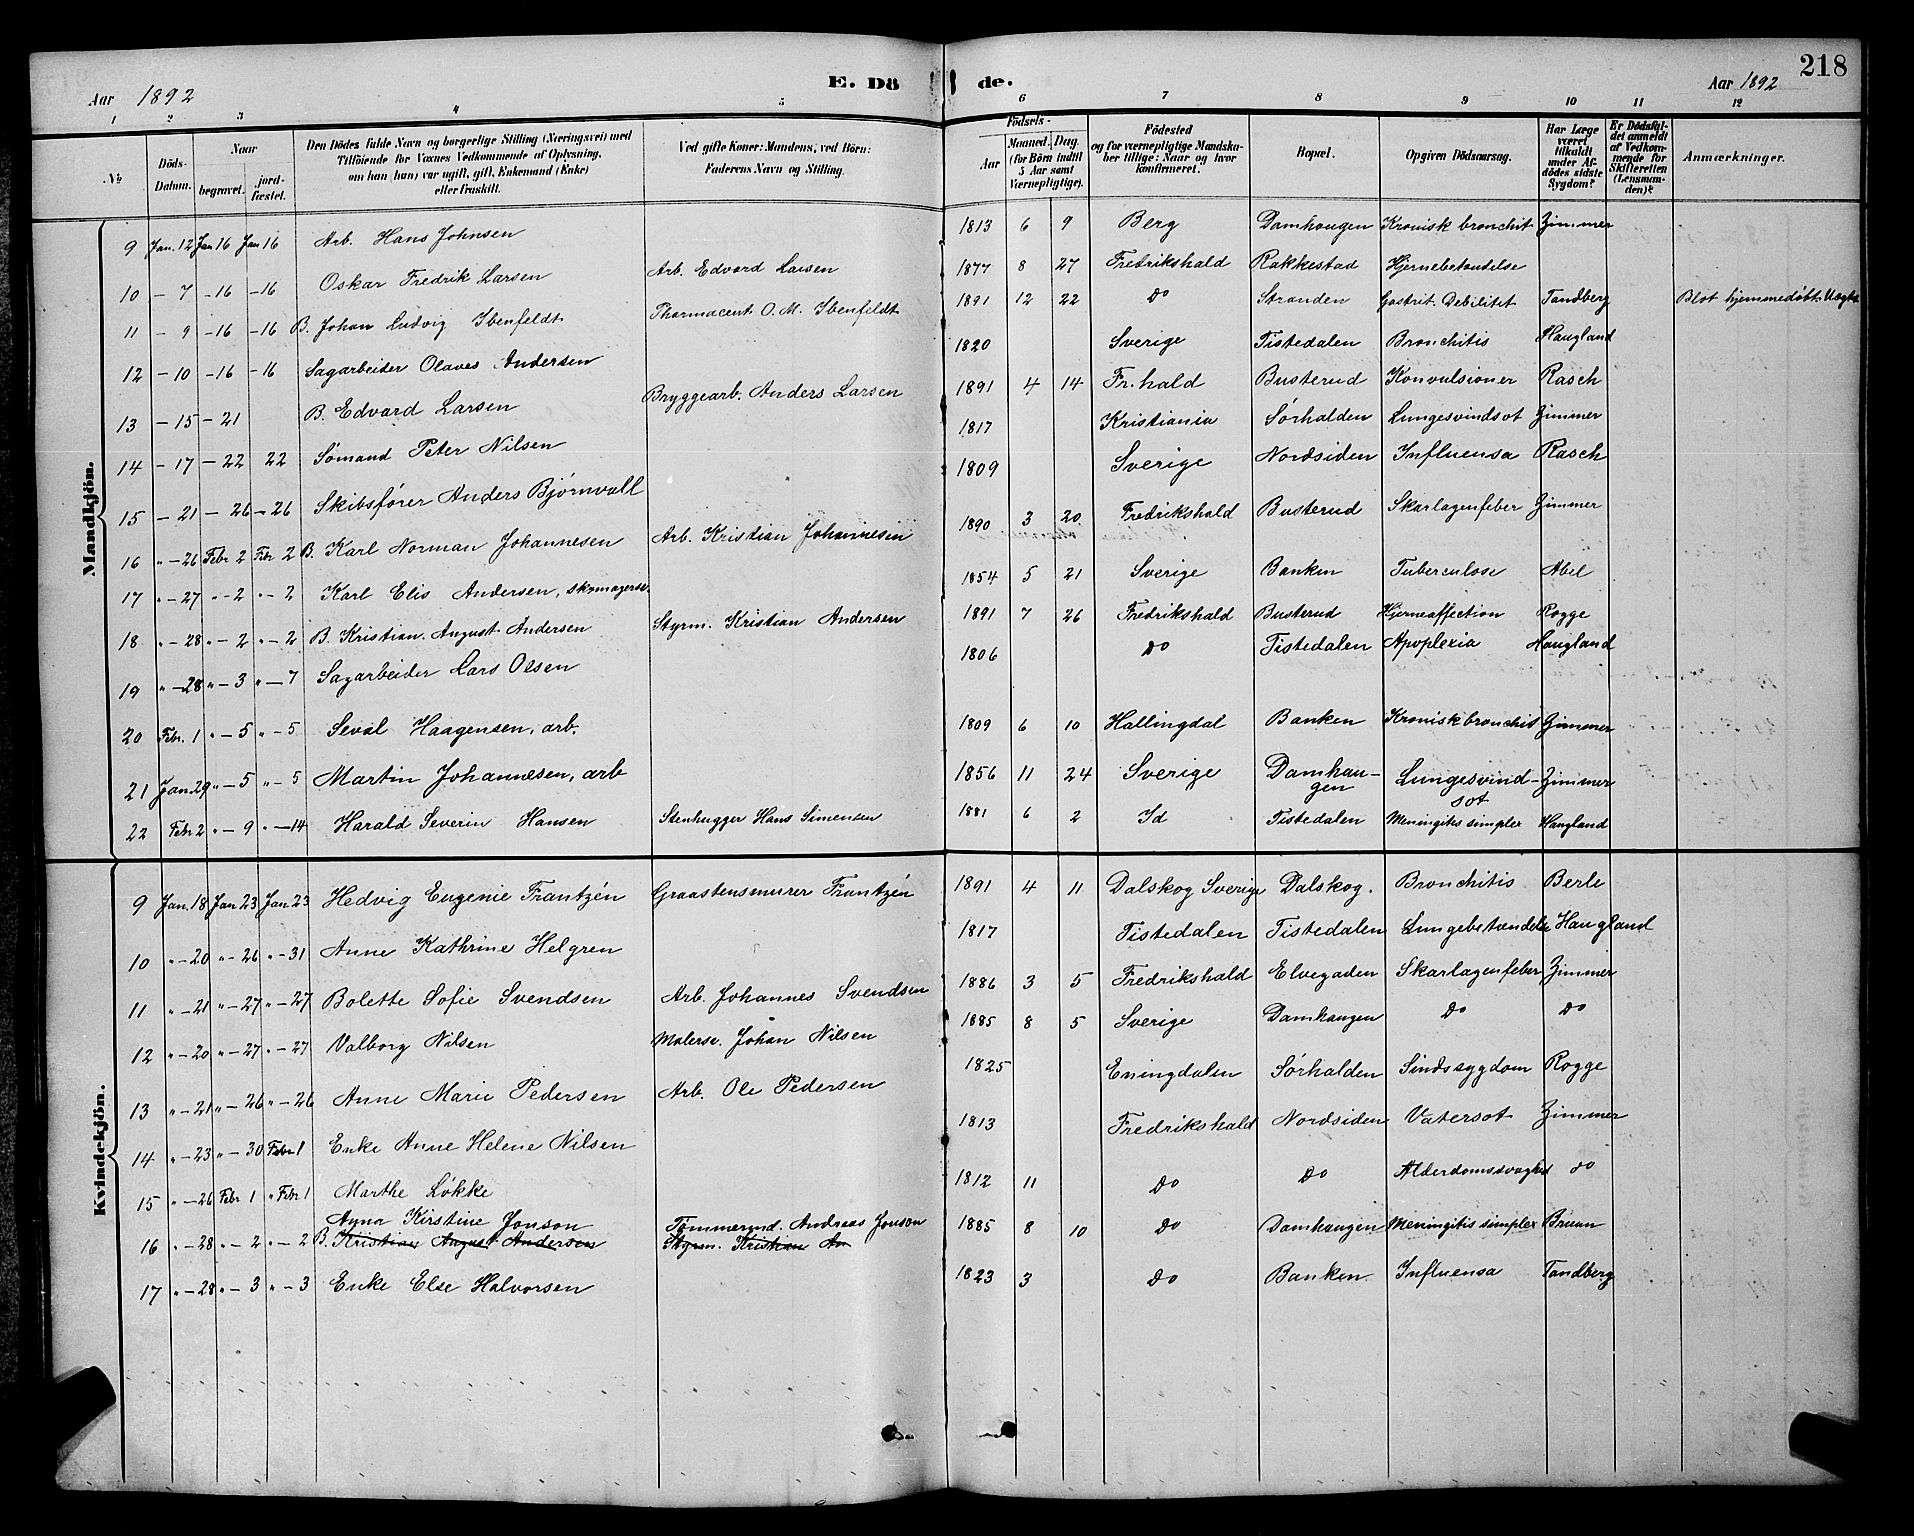 218
Aar 1892 E. Dö de. Aar 1892
1 2 3 4 5 6 7 8 9 10 11 12
No. Döds-Datum. Naar begravet. jordfæstet. Den Dödes fulde Navn og borgerlige Stilling (Næringsvei) med Tilföiende for Voxnes Vedkommende af Oplysning, om han (hun) var ugift, gift, Enkemand (Enke) eller fraskilt. Ved gifte Koner: Mandens, ved Börn: Faderens Navn og Stilling. Födsels- Aar Maaned Dag (for Börn indtil 5 Aar samt Værnepligtige). Födested og for værnepligtige Mandskaber tillige: Naar og hvor konfirmeret. Bopæl. Opgiven Dödsaarsag. Har Læge været tilkaldt under Afdödes sidste Sygdom? Er Dödsfaldet anmeldt af Vedkommende for Skifteretten (Lensmanden)? Anmærkninger.
Mandkjön.
9 Jan. 12 Jan 16 Jan 16 Arb. Hans Johnsen 1813 6 9 Berg Damhaugen Kronisk bronchit Zimmer
10 - 7 - 16 - 16 Oskar Fredrik Larsen Arb. Edvard Larsen 1877 8 27 Fredrikshald Rakkestad Hjernebetændelse
11 - 9 - 16 - 16 B. Johan Ludvig Ibenfeldt Pharmaceut O. M. Ibenfeldt 1891 12 22 Do Stranden Gastrit. Debilitet Tandberg Blot hjemmedøbt.
12 - 10 - 16 - 16 Sagarbeider Olaves Andersen 1820 Sverige Tistedalen Bronchitis Haugland
13 - 15 - 21 B. Edvard Larsen Bryggearb. Anders Larsen 1891 4 14 Fr.hald Busterud Konvulsioner Rasch
14 - 17 - 22 22 Sømand Peter Nilsen 1817 Kristiania Sørhalden Lungesvindsot Zimmer
15 - 21 - 26 - 26 Skibsfører Anders Bjørnvall 1809 Sverige Nordsiden Influensa Rasch
16 " - 26 Febr 2 Febr 2 B. Karl Norman Johannesen Arb. Kristian Johannesen 1890 3 20 Fredrikshald Busterud Skarlagenfeber Zimmer
17 " - 27 " - 2 " - 2 Karl Elis Andersen, skomagersv. 1854 5 21 Sverige Banken Tuberculose Abel
18 " - 28 " - 2 " - 2 B. Kristian August Andersen Styrm. Kristian Andersen 1891 7 26 Fredrikshald Busterud Hjerneaffection Rogge
19 " - 28 " - 3 " - 7 Sagarbeider Lars Olsen 1806 Do Tistedalen Apoplexia Haugland
20 Febr. 1 " - 5 " - 5 Seval Haagensen, arb. 1809 6 10 Hallingdal Banken Kronisk bronchit Zimmer
21 Jan. 29 " - 5 " - 5 Martin Johannesen, arb 1856 11 24 Sverige Damhaugen Lungesvind-sot Zimmer
22 Febr 2 " - 9 " - 14 Harald Severin Hansen Stenhugger Hans Simensen 1881 6 2 Id Tistedalen Meningitis simplex Haugland
Kvindekjön.
9 Jan. 18 Jan 23 Jan 23 Hedvig Eugenie Frantzén Graastensmurer Frantzén 1891 4 11 Dalskog Sverige Dalskog. Bronchitis Berle
10 " - 20 " - 26 " - 31 Anne Kathrine Helgren 1817 Tistedalen Tistedalen Lungebetændelse Haugland
11 " - 21 " - 27 " - 27 Bolette Sofie Svendsen Arb. Johannes Svendsen 1886 3 5 Fredrikshald Elvegaden Skarlagenfeber Zimmer
12 " - 20 " - 27 " - 27 Valborg Nilsen Malersv. Johan Nilsen 1885 8 5 Sverige Damhaugen Do Do
13 " - 21 " - 26 " - 26 Anne Marie Pedersen Arb. Ole Pedersen 1825 Eningdalen Sørhalden Sindssygdom Rogge
14 " - 23 " - 30 Febr 1 Enke Anne Helene Nilsen 1813 Fredrikshald Nordsiden Vatersot Zimmer
15 " - 26 Febr 1 " Febr 1 Marthe Løkke 1812 11 Do Do Alderdomssvaghed do
Anna Kirstine Jonson Tømmermd. Andreas Jonson
16 " - 28 " - 2 " - 2 B. Kristian August Andersen Styrm. Kristian An 1885 8 10 Do Damhaugen Meningitis simplex Bruun
17 " - 28 " - 3 " - 3 Enke Else Halvorsen 1823 3 Do Banken Influensa Tandberg